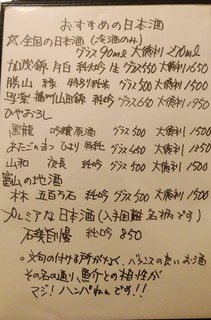 おすすめの日本酒
☆全国の日本酒(冷酒のみ)
グラス90ml 大徳利270ml
加茂錦 月白 純大吟生 グラス550 大徳利1650
勝山 縁 特別純米 グラス500 大徳利1500
写楽 播州山田錦 純吟 グラス650 大徳利1950
ひやおろし
黒龍 吟醸原酒 グラス500 大徳利1500
あたごのまつ ひより 純吟 グラス450 大徳利1350
山和 純吟 グラス500 大徳利1500
富山の地酒
林 五百万石 純吟 グラス500 大徳利1500
プレミアムな日本酒(入手困難 名柄です)
純吟 850
○文句の付ける所がなく、バランスの良いお酒
その名の通り、魚介との相性が
マジ!ハンパねぇです!!